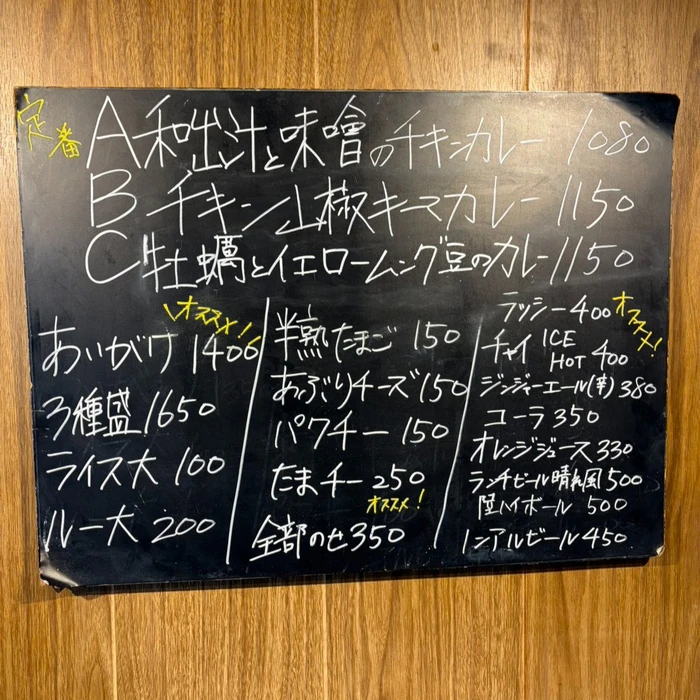 定番
A 和出汁と味噌のチキンカレー 1080
B チキン山椒キーマカレー 1150
C 牡蠣とイエロームング豆のカレー 1150
\オススメ!/
あいがけ 1400
3種盛 1650
ライス大 100
ルー大 200
半熟たまご 150
あぶりチーズ 150
パクチー 150
たまチー 250
オススメ!
全部のせ 350
ラッシー 400 オススメ!
チャイ ICE HOT 400
ジンジャーエール(辛) 380
コーラ 350
オレンジジュース 330
ランチビール晴れ風 500
陸ハイボール 500
ノンアルビール 450